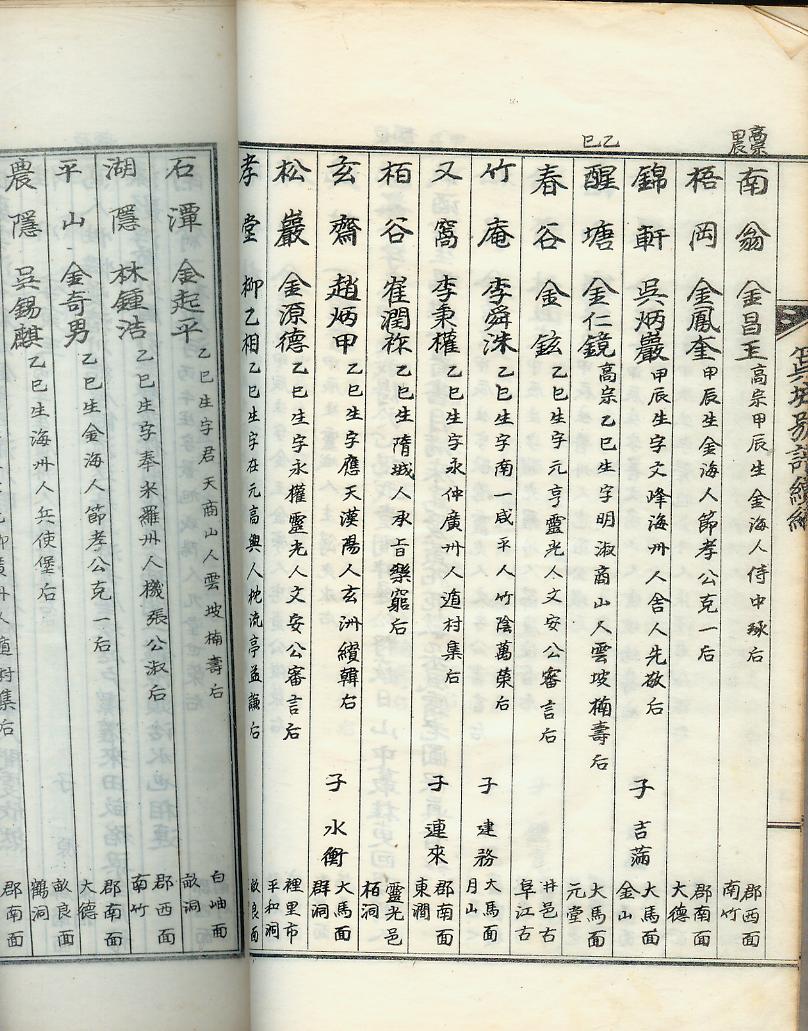 高宗
甲辰
乙巳
南翁 金昌玉 高宗甲辰生金海人侍中琢后 郡西面南竹
梧岡 金鳳奎 甲辰生金海人節孝公克一后 郡南面大德
錦軒 吳炳巖 甲辰生字文峰海州人舍人先敬后 子吉蒲 大馬面金山
醒塘 金仁鏡 高宗乙巳生字明淑商山人雲坡楠壽后 大馬面元堂
春谷 金鉉 乙巳生字元亨靈光人文安公審言后 井邑古阜江古
竹庵 李舜洙 乙巳生字南一咸平人竹陰萬榮后 子建務 大馬面月山
又窩 李秉權 乙巳生字永仲廣州人遁村集后 子連來 郡南面東澗
栢谷 崔潤祚 乙巳生隋城人承旨樂窮后 靈光邑栢洞
玄齋 趙炳甲 乙巳生字應天漢陽人玄洲纘韓后 子水衡 大馬面群洞
松巖 金源德 乙巳生字永權靈光人文安公審言后 裡里市平和洞
孝堂 柳乙相 乙巳生字在元高興人枕流亭益謙后 畝良面
石潭 金起平 乙巳生字君天商山人雲坡楠壽后 白岫面畝洞
湖隱 林鍾浩 乙巳生字奉米羅州人機張公淑后 郡西面南竹
平山 金奇男 乙巳生金海人節孝公克一后 郡南面大德
農隱 吳錫麒 乙巳生海州人兵使堡后 畝良面鶴洞
郡南面